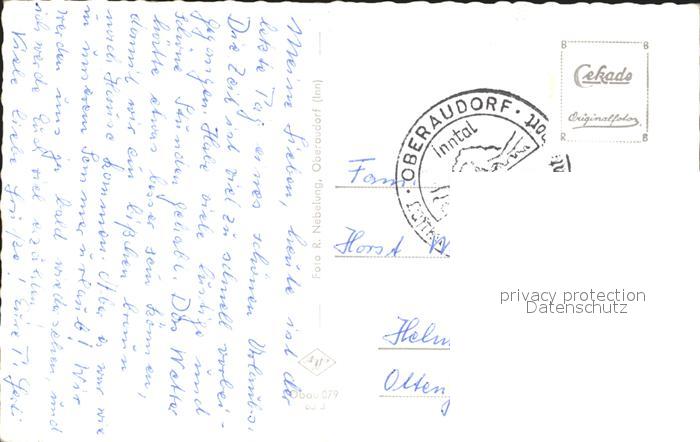 Meine Lieben, heute ist der
letzte Tag eines schönen Urlaubs.
Die Zeit ist viel zu schnell vorbei-
gegangen. Habe viele lustige und
schöne Stunden gehabt. Das Wetter
hätte etwas besser sein können,
damit wir ein bißchen braun
nach Hause kommen. Aber es war wie
in unserem Sommerurlaub! Wir
werden uns ja bald wiedersehen, und
ich werde Euch viel erzählen!
Viele liebe Grüße! Eure
Foto R. Nebelung, Oberaudorf (Inn)
Obau 079
OBERAUDORF
Inntal
Luftkurort
Cekade
Originalfoto
B B
R B
Fam.
Horst
privacy protection
Datenschutz